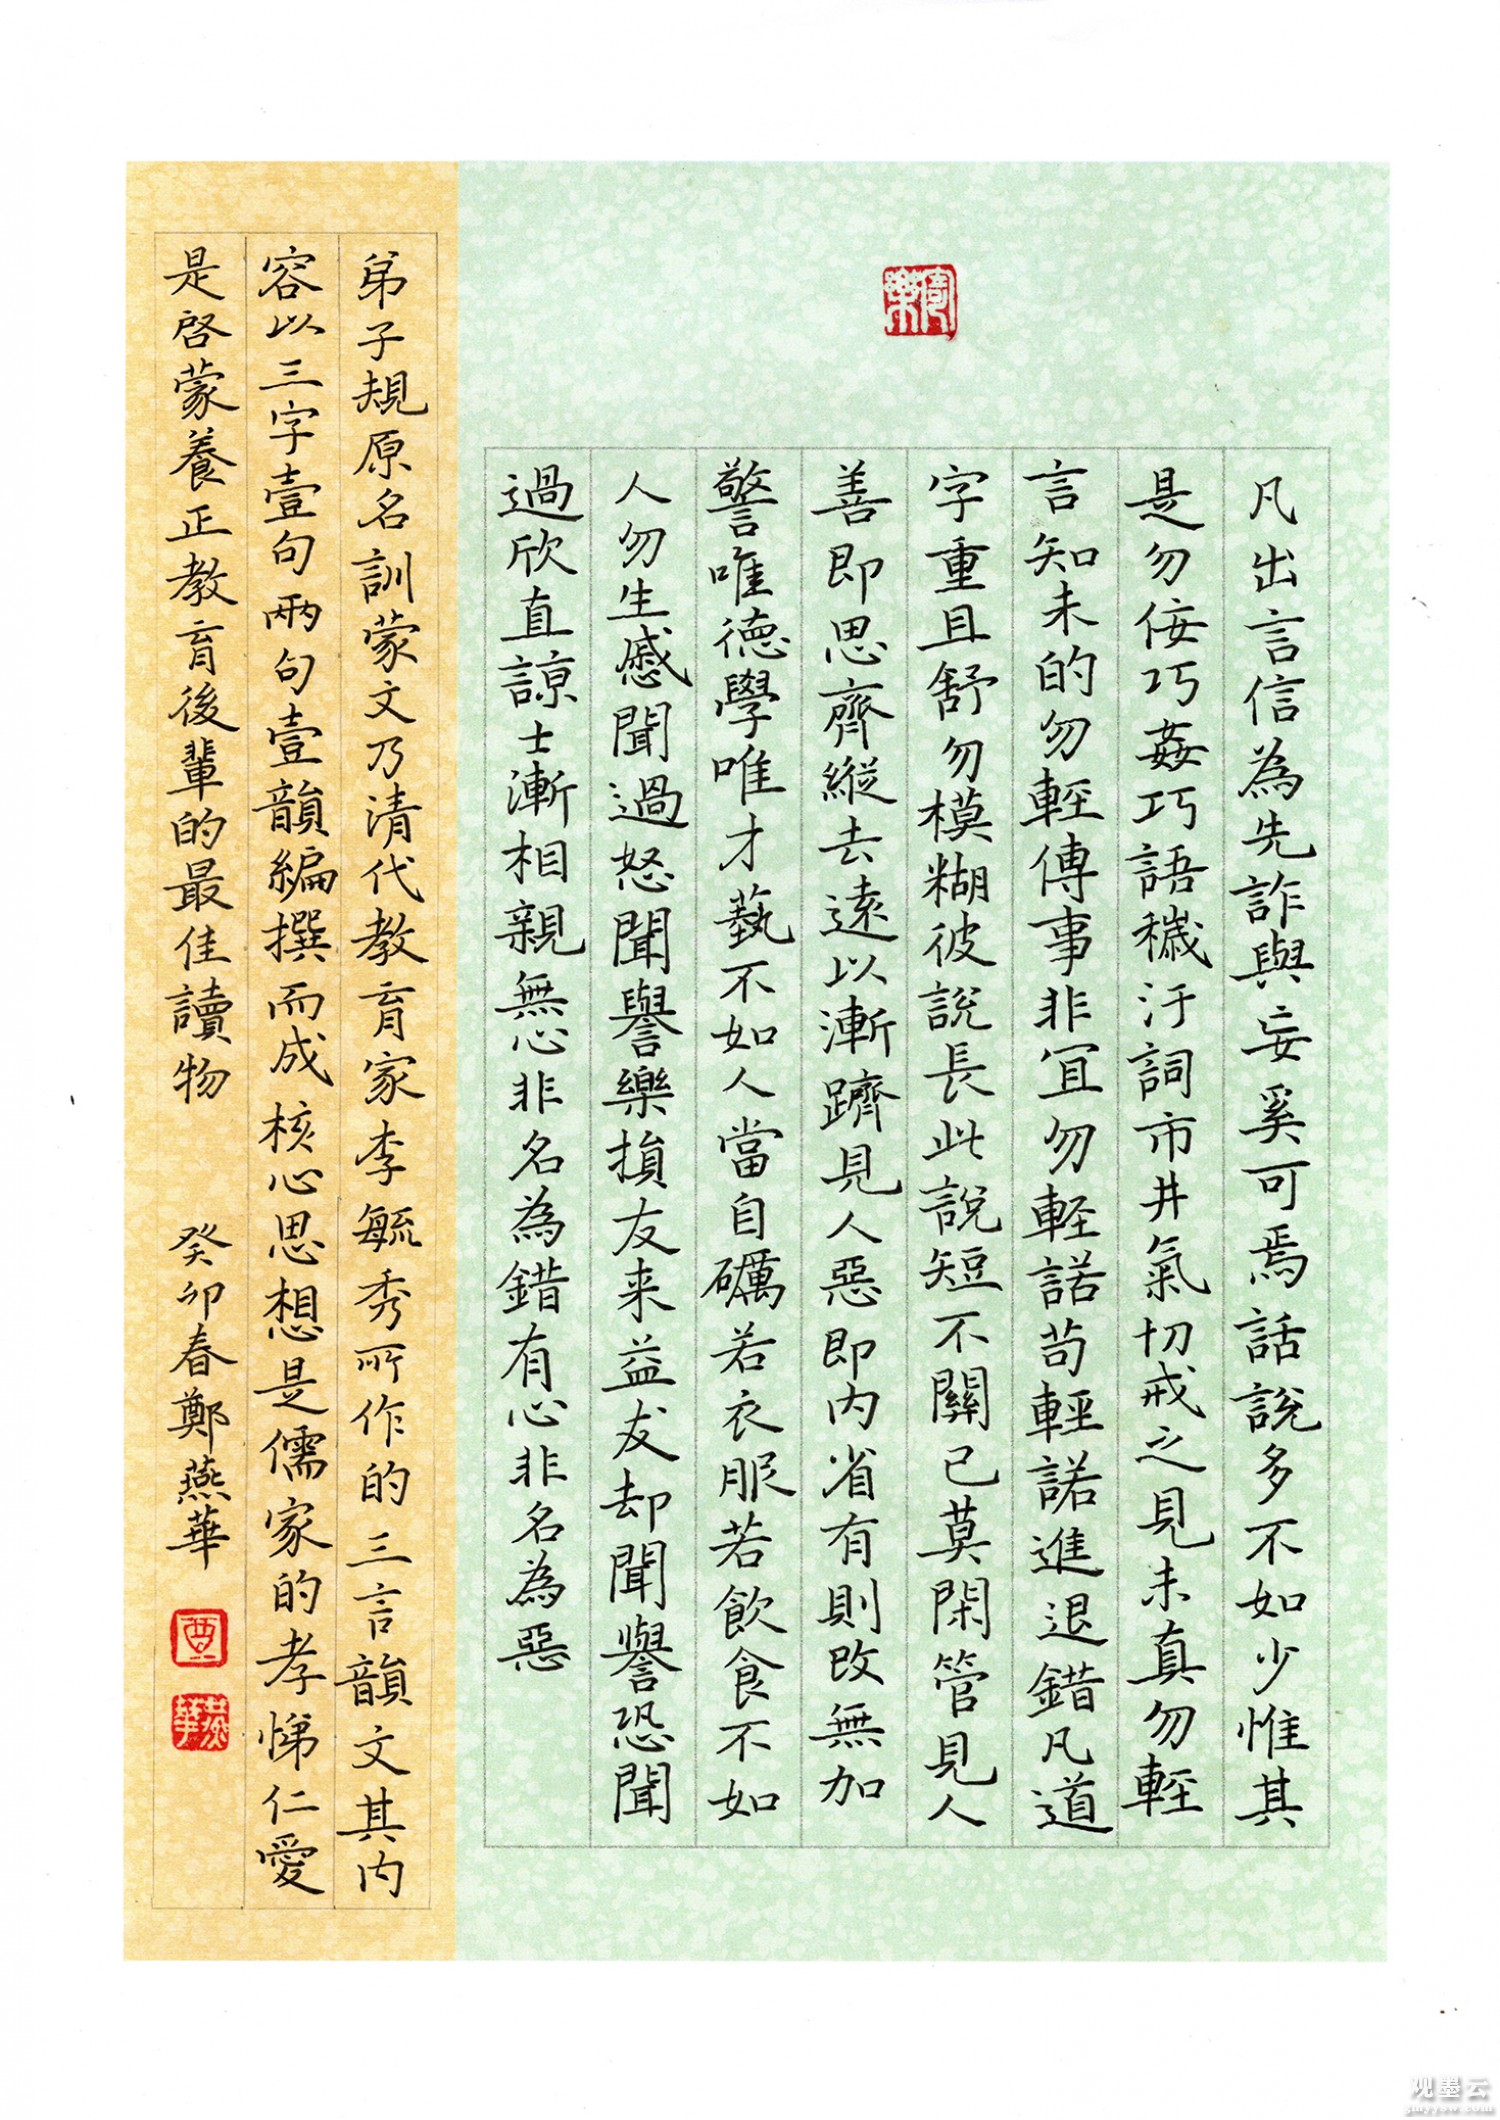 凡出言信為先詐與妄奚可焉話說多不如少惟其
是勿佞巧姦巧語穢汙詞市井氣切戒之見未真勿輕
言知未的勿輕傳事非宜勿輕諾苟輕諾進退錯凡道
字重且舒勿模糊彼說長此說短不關己莫閑管見人
善即思齊縱去遠以漸躋見人惡即內省有則改無加
警唯德學唯才藝不如人當自礪若衣服若飲食不如
人勿生慼聞過怒聞譽樂損友来益友却聞譽恐聞
過欣直諒士漸相親無心非名為錯有心非名為惡
弟子規原名訓蒙文乃清代教育家李毓秀所作的三言韻文其內
容以三字壹句兩句壹韻編撰而成核心思想是儒家的孝悌仁愛
是啓蒙養正教育後輩的最佳讀物 癸卯春鄭燕華
燕華
观墨云